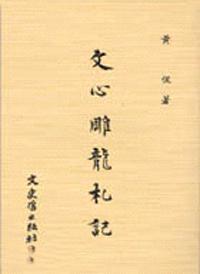 黃侃著
文心雕龍札記
文史哲出版社印行